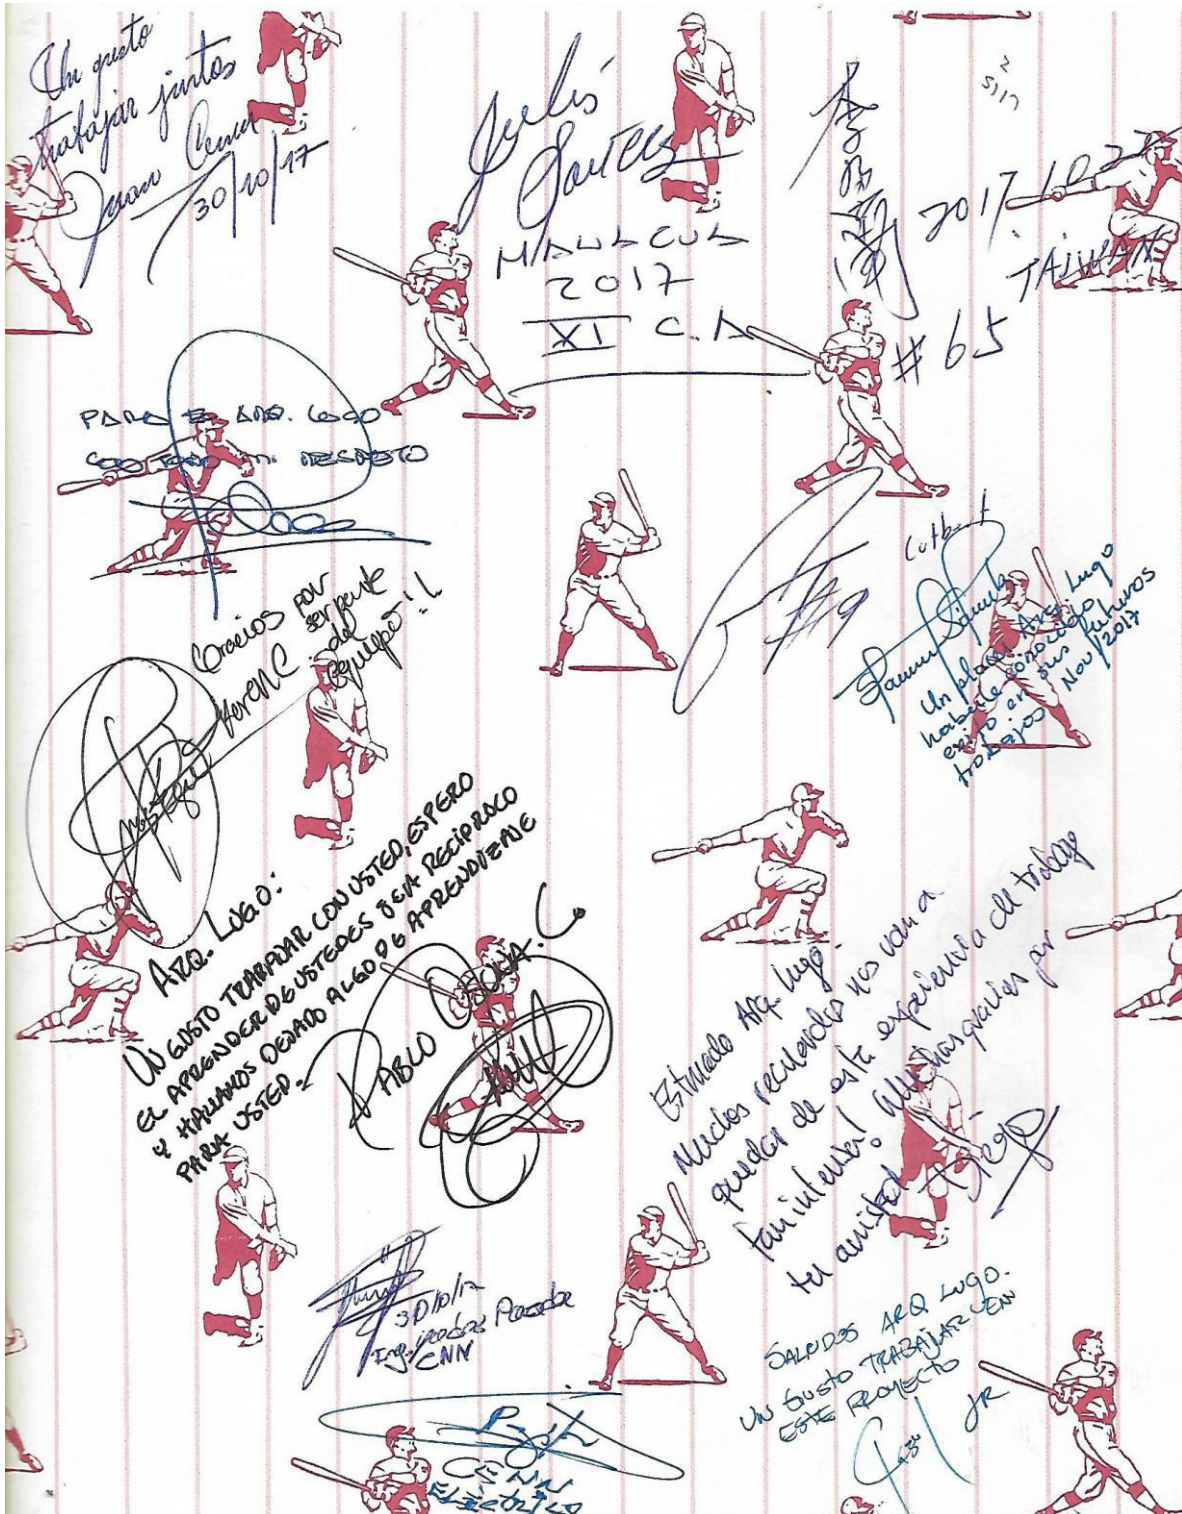 Un gusto
trabajar juntos
Juan
30/10/17
Julis
MANAGUA
2017
XI C.A
李
2017.10.2
TAIWAN
# 65
PARA EL ARQ. LUGO
CON TODO MI RESPETO
Cutbert
#9
Un placer Arq. Lugo
haberle conocido,
exito en sus futuros
trabajos Nov/2017
Gracias por
ser parte
del
equipo!!
ARQ. LUGO:
UN GUSTO TRABAJAR CON USTED, ESPERO
EL APRENDER DE USTEDES SEA RECIPROCO
Y HALLAMOS DEJADO ALGO DE APRENDIZAJE
PARA USTED.
PABLO OSUNA. C.
Estimado Arq. Lugo.
Muchos recuerdos nos van a
quedar de esta experiencia de trabajo
tan intensa! Muchas gracias por
tu amistad Diego
30/10/17
Ing.
CNN
CENN
ELECTRICO
SALUDOS ARQ LUGO.
UN GUSTO TRABAJAR EN
ESTE PROYECTO
JR